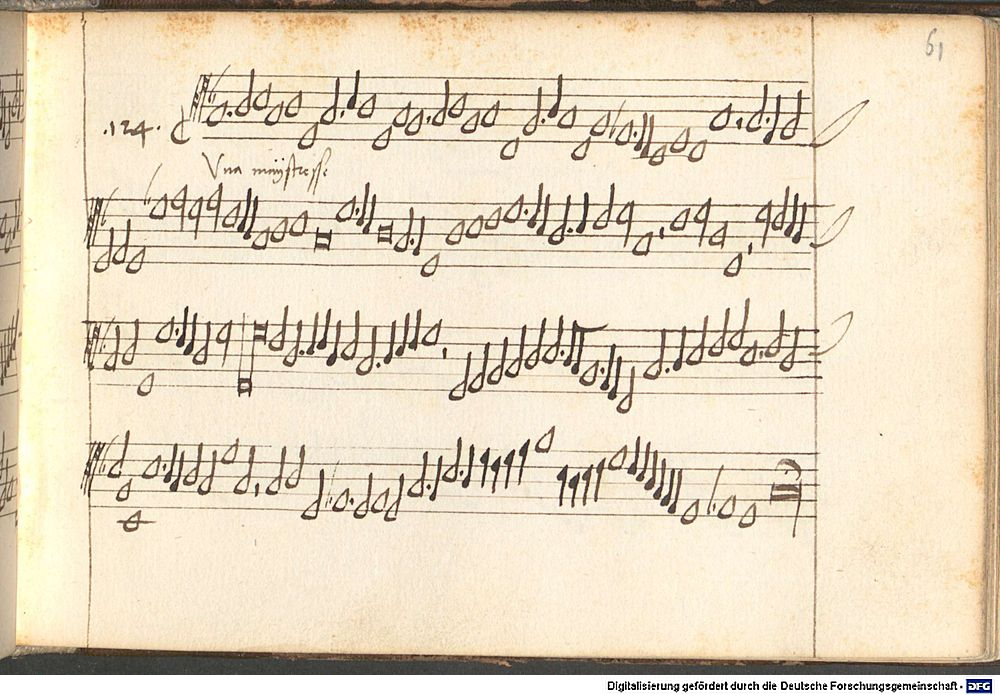 61
.124.
Vna müsstresse
Digitalisierung gefördert durch die Deutsche Forschungsgemeinschaft - DFG